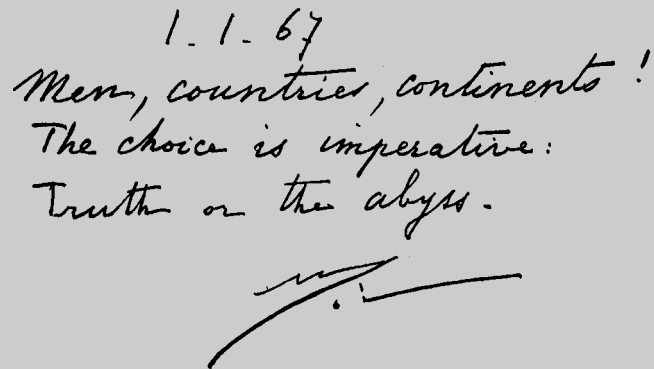 1-1-67
Men, countries, continents!
The choice is imperative:
Truth or the abyss.